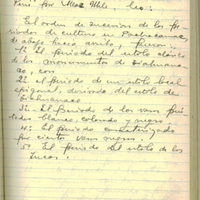 Perú por Max Uhle, lee:
El orden de sucesion de los pe
riodos de cultura en Pachacamac,
de abajo hacia arriba, fueron:
1º El periodo del estilo clásico
de los monumentos de Tiahuana
co, con
2º el periodo de un estilo local
epigonal, derivado del estilo de
Tiahuanaco
3º El periodo de los vasos pin
tados blanco, colorado y negro.
4º El periodo caracterizado
por ciertos vasos negros.
5º El periodo del estilo de los
Incas.